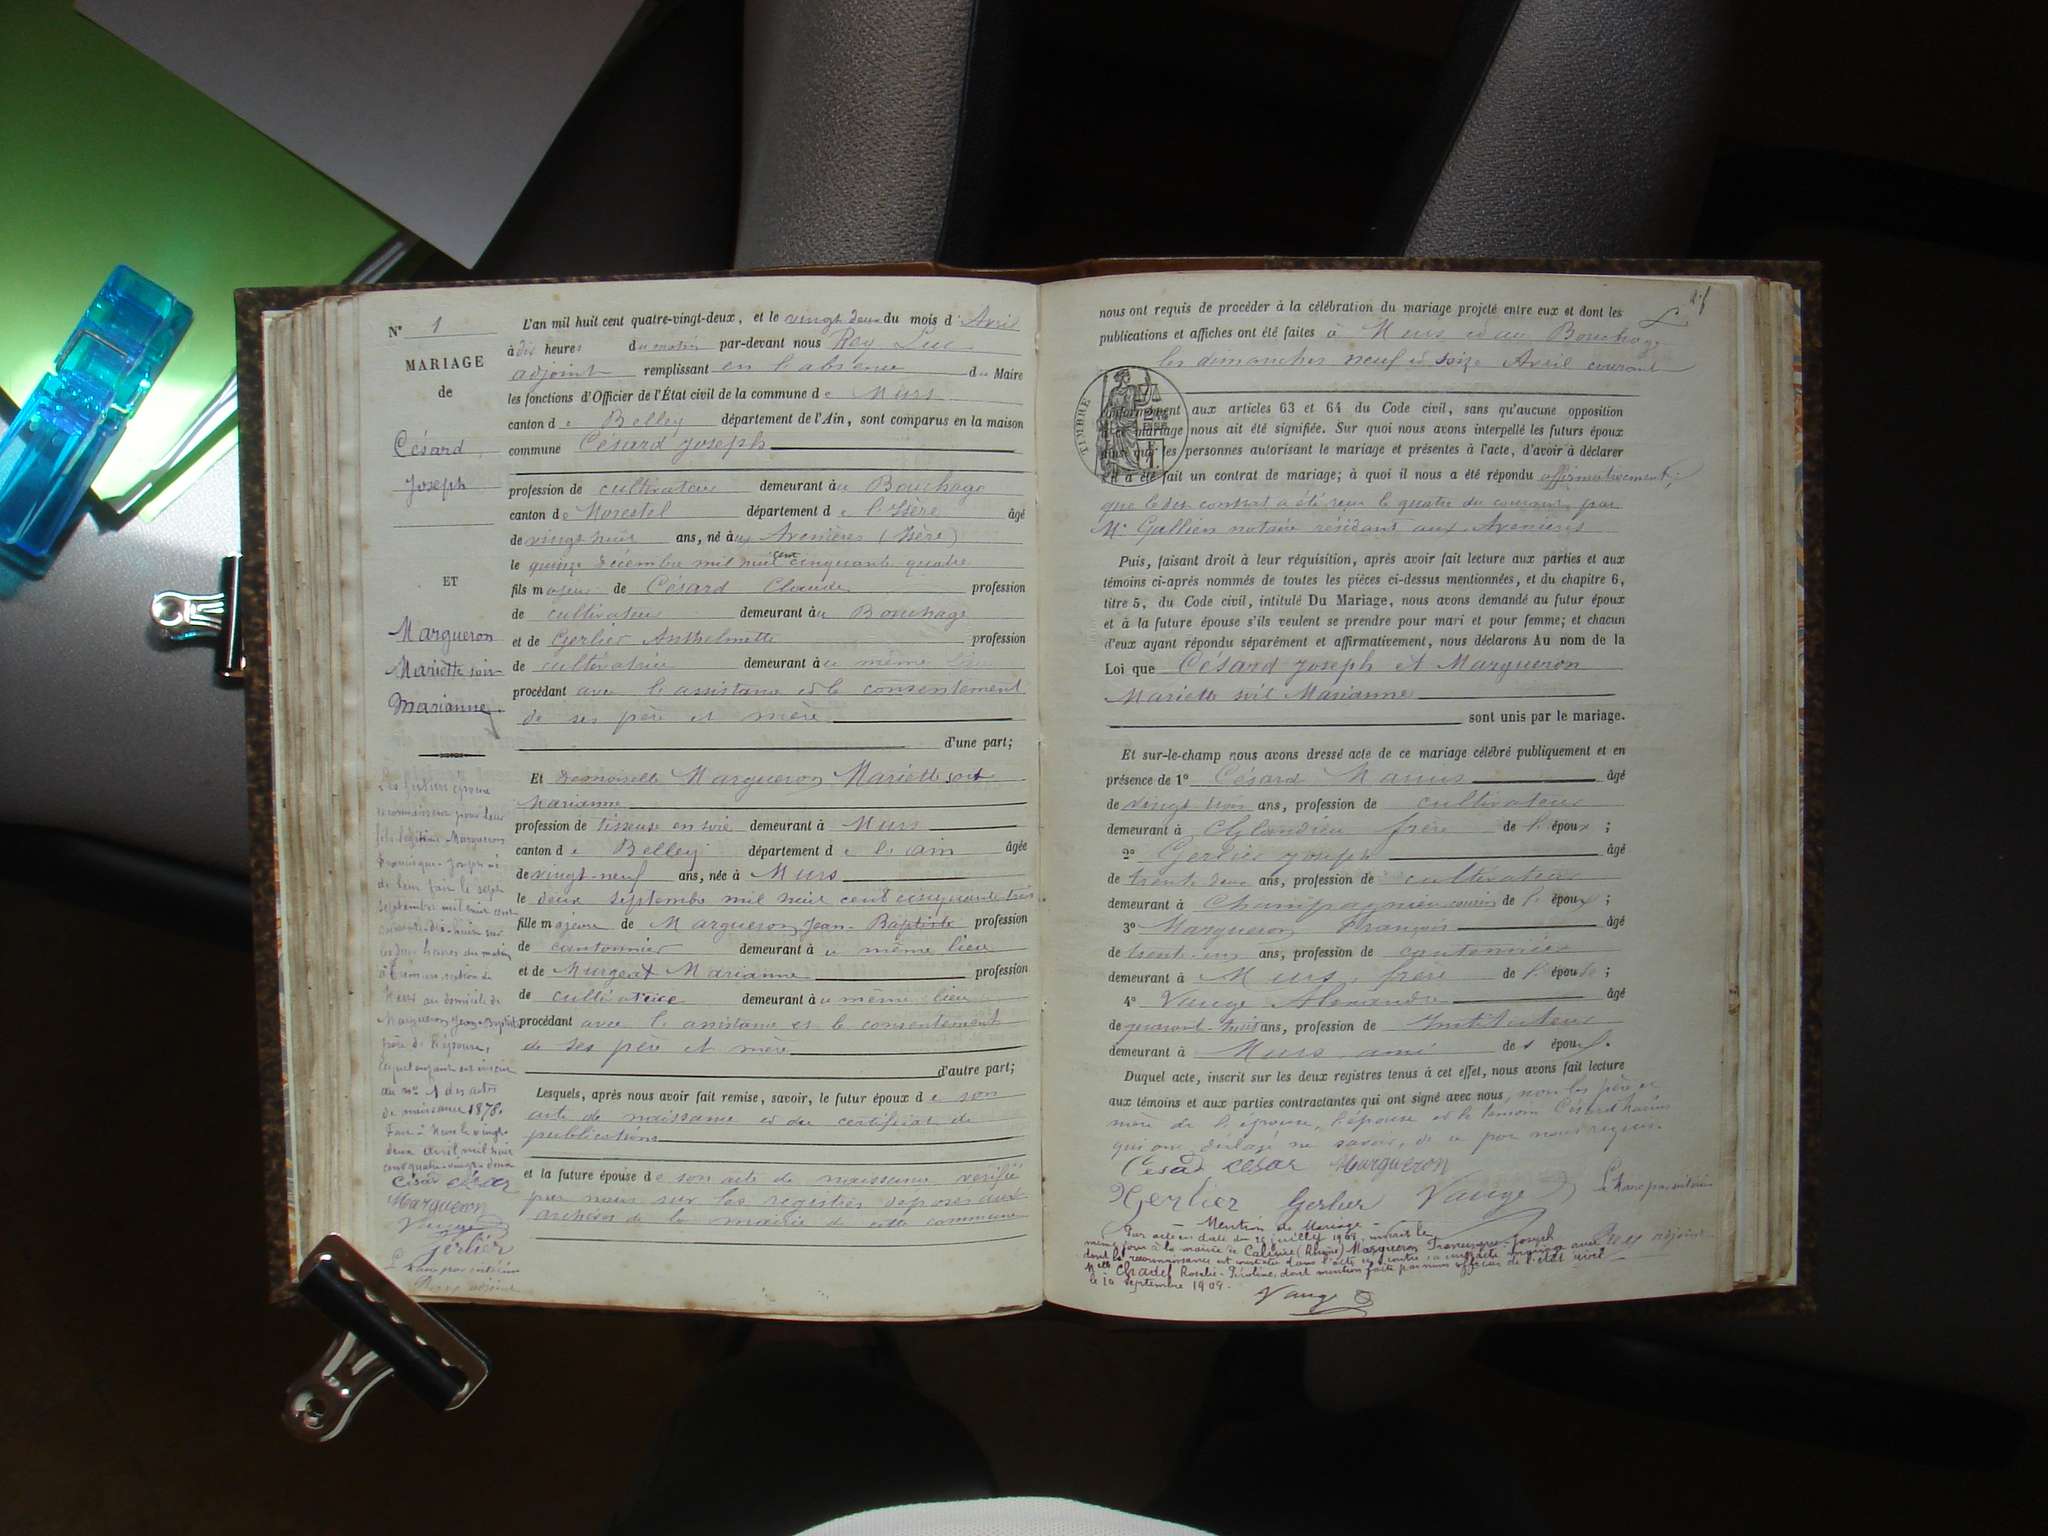 N° 1
MARIAGE
de
Césard
Joseph
ET
Margueron
Mariette soit
Marianne
L'an mil huit cent quatre-vingt-deux, et le vingt deux du mois d'Avril
à dix heures du matin par-devant nous Rey Luc
adjoint remplissant en l'absence du Maire
les fonctions d'Officier de l'État civil de la commune de Murs
canton de Belley département de l'Ain, sont comparus en la maison
commune Césard Joseph
profession de cultivateur demeurant au Bouchage
canton de Morestel département de l'Isère âgé
de vingt huit ans, né aux Avenières (Isère)
le quinze décembre mil huit cent cinquante quatre
fils majeur de Césard Claude profession
de cultivateur demeurant au Bouchage
et de Gerlier Anthelmette profession
de cultivatrice demeurant au même lieu
procédant avec l'assistance et le consentement
de ses père et mère
d'une part;
Et demoiselle Margueron Mariette soit
Marianne
profession de tisseuse en soie demeurant à Murs
canton de Belley département de l'ain âgée
de vingt-neuf ans, née à Murs
le deux septembre mil huit cent cinquante trois
fille majeure de Margueron Jean-Baptiste profession
de cantonnier demeurant au même lieu
et de Murgeat Marianne profession
de cultivatrice demeurant au même lieu
procédant avec l'assistance et le consentement
de ses père et mère
d'autre part;
Lesquels, après nous avoir fait remise, savoir, le futur époux de son
acte de naissance et du certificat de
publications
et la future épouse de son acte de naissance vérifié
par nous sur les registres déposés aux
archives de la mairie de cette commune
Les futurs époux
reconnaissent pour leur
fils légitime Margueron
Francisque-Joseph né
de leur fait le sept
septembre mil huit cent
soixante-dix-huit sur
les heures du matin
à section de
Murs au domicile de
Margueron Jean-Baptiste
père de l'épouse,
lequel enfant est inscrit
au n° 1 des actes
de naissance 1878.
Fait à Murs le vingt
deux avril mil huit
cent quatre-vingt-deux
César César
Margueron
Vauge
Gerlier
Rey adjoint
nous ont requis de procéder à la célébration du mariage projeté entre eux et dont les
publications et affiches ont été faites à Murs et au Bouchage
les dimanches neuf et seize Avril courant
TIMBRE
conformément aux articles 63 et 64 du Code civil, sans qu'aucune opposition
à ce mariage nous ait été signifiée. Sur quoi nous avons interpellé les futurs époux
ainsi que les personnes autorisant le mariage et présentes à l'acte, d'avoir à déclarer
s'il a été fait un contrat de mariage; à quoi il nous a été répondu affirmativement;
que le dit contrat a été reçu le quatre du courant, par
Me Gallien notaire résidant aux Avenières
Puis, faisant droit à leur réquisition, après avoir fait lecture aux parties et aux
témoins ci-après nommés de toutes les pièces ci-dessus mentionnées, et du chapitre 6,
titre 5, du Code civil, intitulé Du Mariage, nous avons demandé au futur époux
et à la future épouse s'ils veulent se prendre pour mari et pour femme; et chacun
d'eux ayant répondu séparément et affirmativement, nous déclarons Au nom de la
Loi que Césard Joseph et Margueron
Mariette soit Marianne
sont unis par le mariage.
Et sur-le-champ nous avons dressé acte de ce mariage célébré publiquement et en
présence de 1° Césard Marius âgé
de vingt trois ans, profession de cultivateur
demeurant à frère de l'époux;
2° Gerlier Joseph âgé
de trente deux ans, profession de cultivateur
demeurant à Champagneu cousin de l'époux;
3° Margueron François âgé
de trente-un ans, profession de cantonnier
demeurant à Murs, frère de l'épouse;
4° Vauge Alexandre âgé
de quarante-huit ans, profession de Instituteur
demeurant à Murs, ami de s époux.
Duquel acte, inscrit sur les deux registres tenus à cet effet, nous avons fait lecture
aux témoins et aux parties contractantes qui ont signé avec nous, non les père et
mère de l'épouse, l'épouse et le témoin Césard Marius
qui ont déclaré ne savoir, de ce par nous requis.
Césard César Margueron
Gerlier Gerlier Vauge
Rey adjoint
Mention de Mariage
Par acte en date du 26 juillet 1909, inscrit le
même jour à la mairie de Caluire (Rhône) Margueron Francisque Joseph
dont la reconnaissance est constatée dans l'acte ci-contre a contracté mariage avec
Melle Chadel Rosalie, dont mention faite par nous officier de l'état civil
le 10 septembre 1909.
Vauge